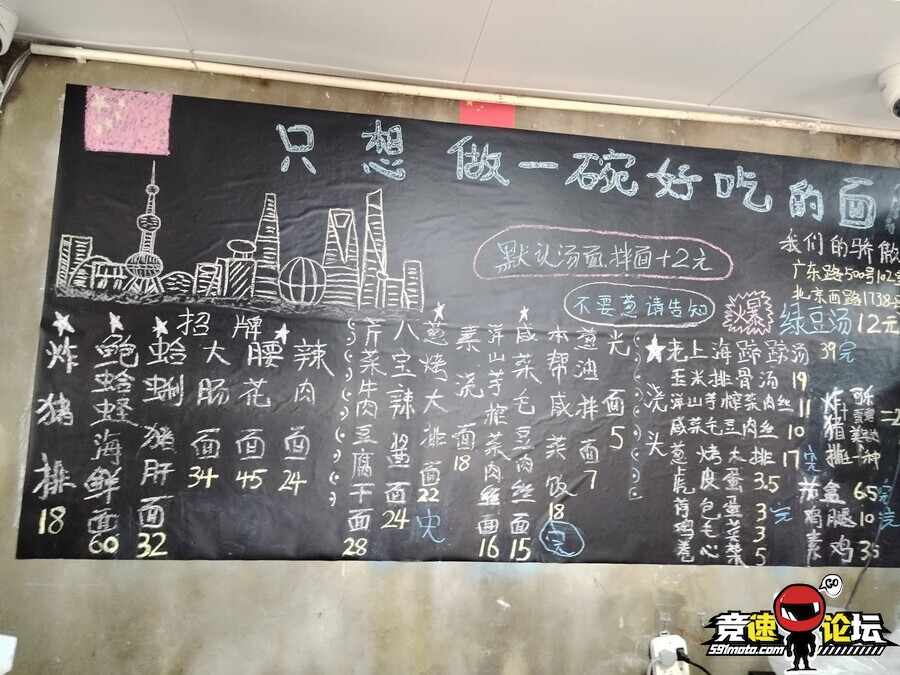 只想做一碗好吃的面
默认汤面,拌面+2元
不要葱请告知
我们的
广东路500号102
北京西路1738号
爆
绿豆汤12元
招牌
炸猪排18
鲍蛤蛏海鲜面60
蛤蜊猪肝面32
大肠面34
腰花面45
辣肉面24
芹菜牛肉豆腐干面28
八宝辣酱面24
葱烤大排面22完
素浇面18
洋山芋榨菜肉丝面16
咸菜毛豆肉丝面15
本帮咸菜饭18完
葱油拌面7
光面5
浇头
老上海蹄蹄汤39完
玉米排骨汤19
洋山芋榨菜肉丝11
咸菜毛豆肉丝10
葱烤大排17完
虎皮蛋3.5
荷包蛋3元
鸡毛菜3
素卷心菜5
炸猪排
荷包
鸡腿10完
素鸡3
GO
竞速论坛
591moto.com